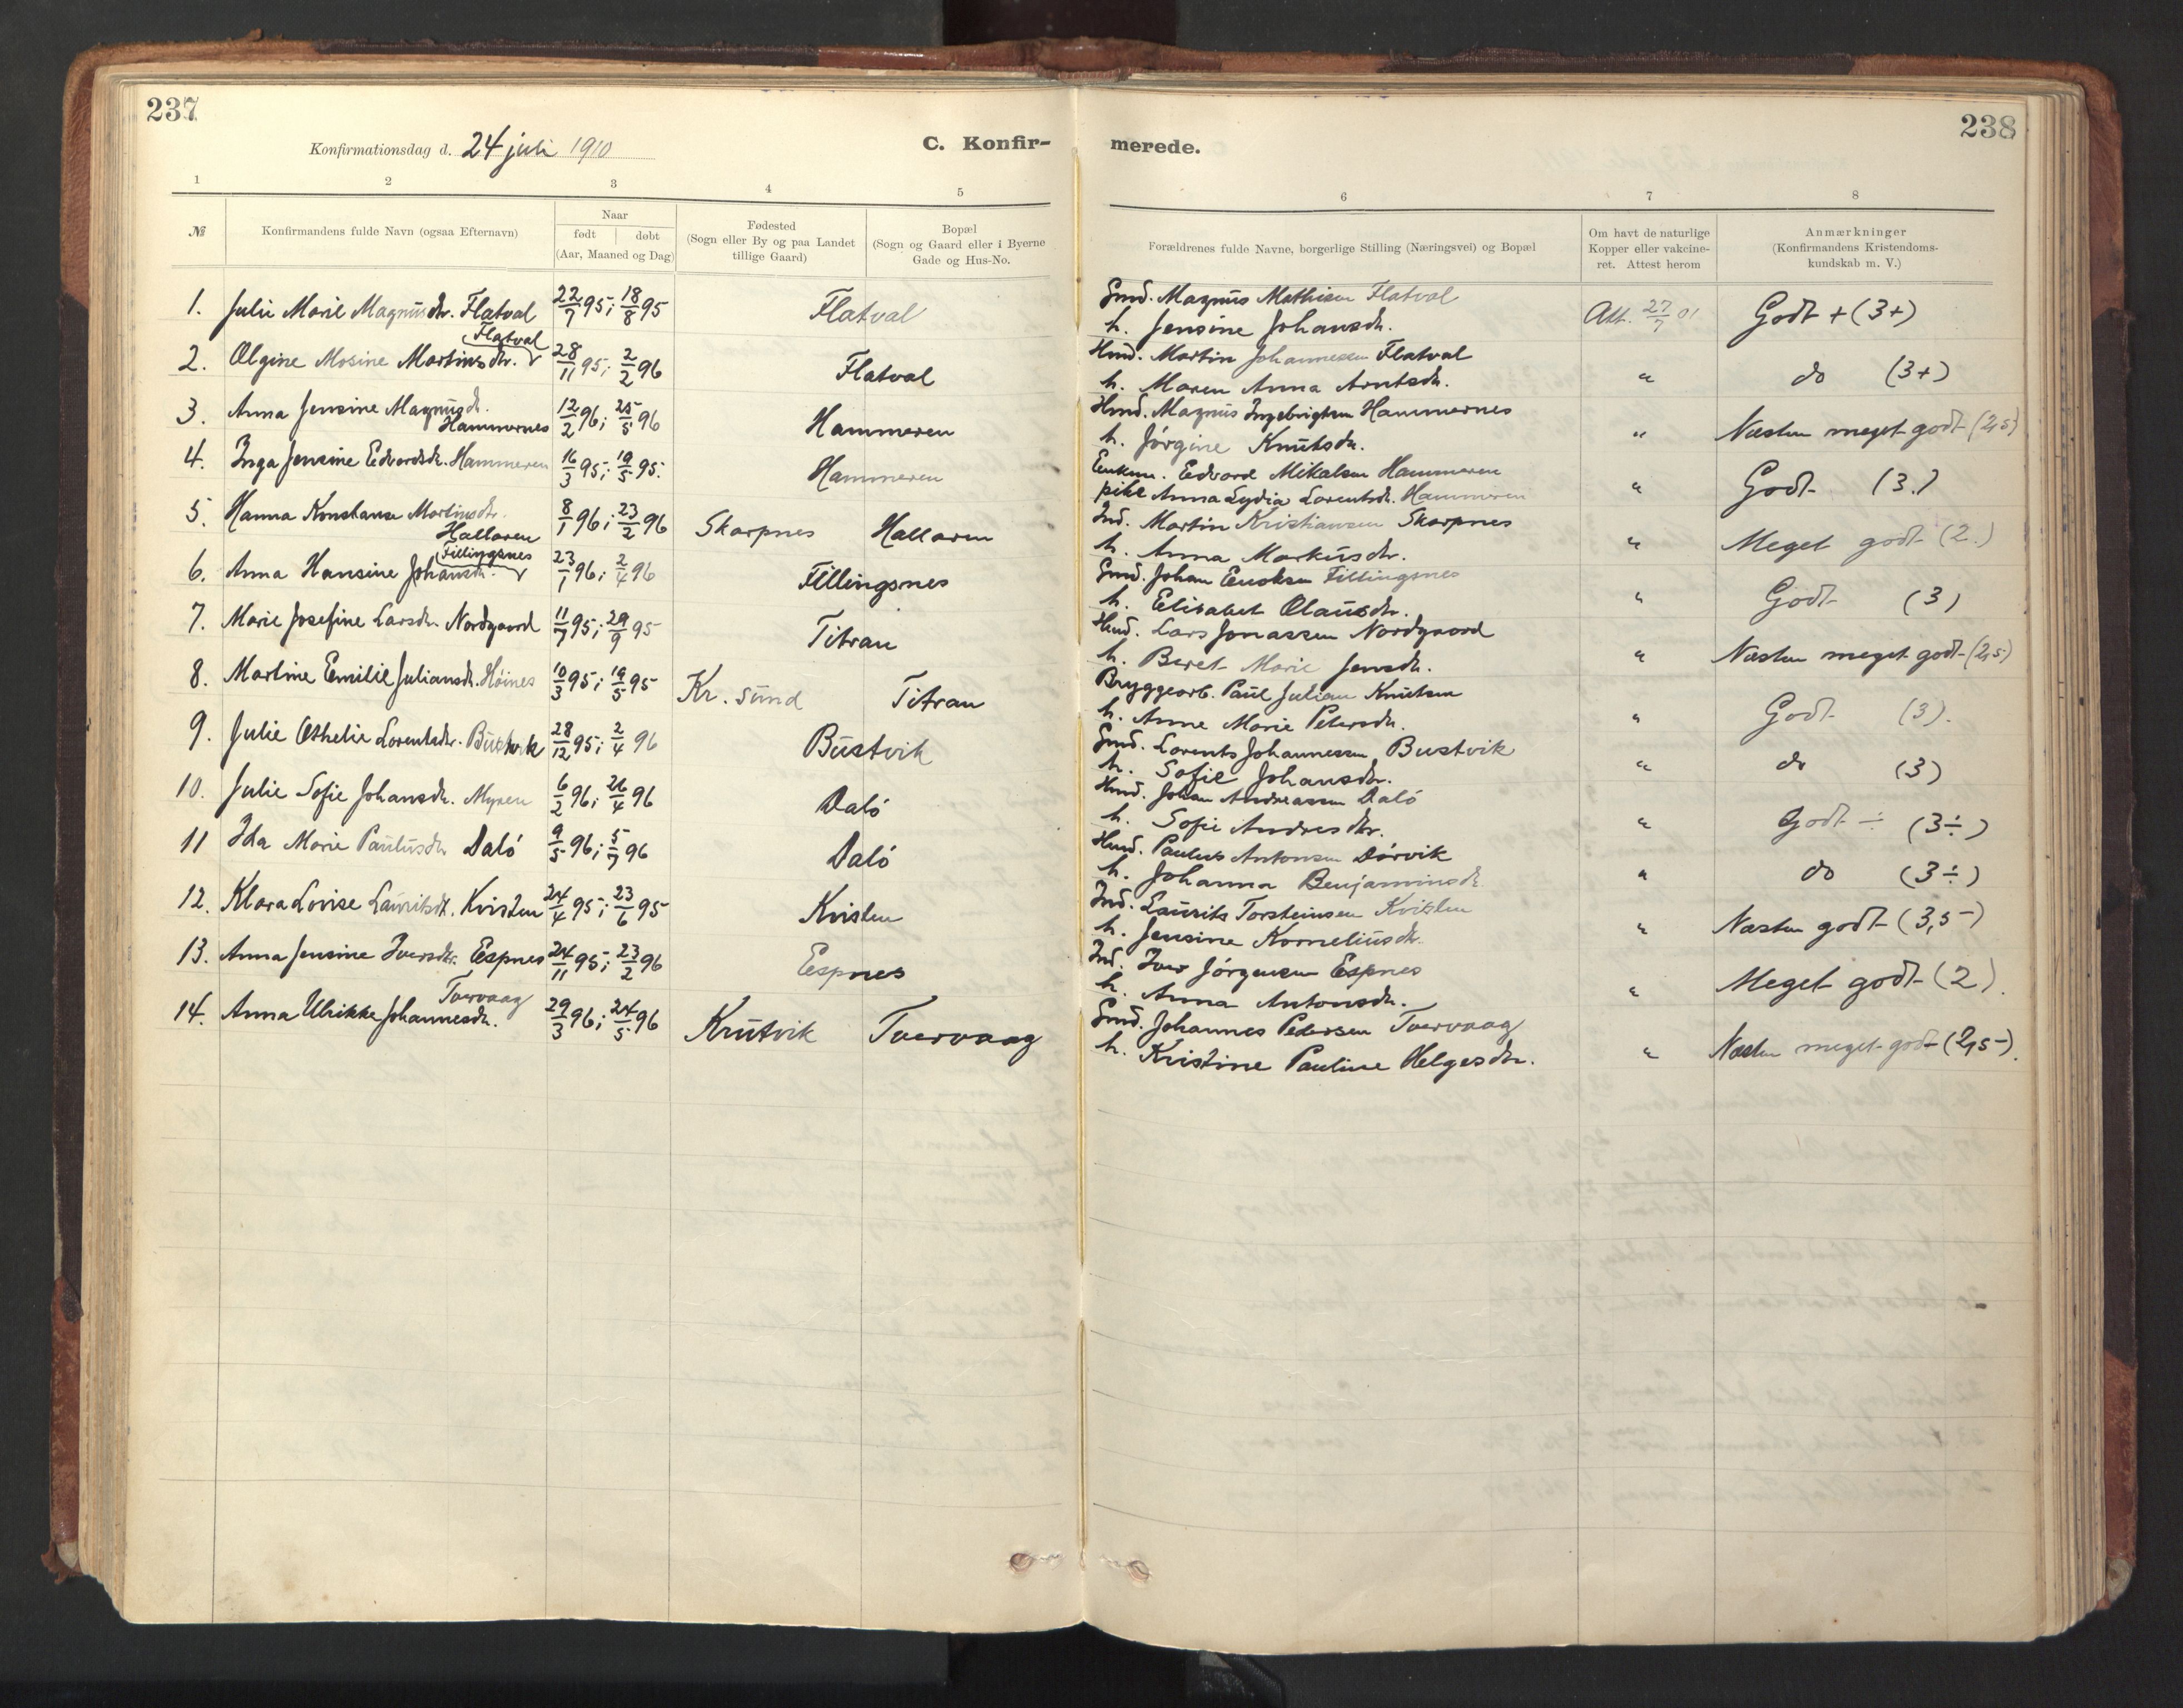 237
Konfirmationsdag d. 24 juli 1910
C. Konfir-
merede.
238
1 2 3 4 5 6 7 8
№
Konfirmandens fulde Navn (ogsaa Efternavn)
Naar
født døbt
(Aar, Maaned og Dag)
Fødested
(Sogn eller By og paa Landet
tillige Gaard)
Bopæl
(Sogn og Gaard eller i Byerne
Gade og Hus-No.
Forældrenes fulde Navne, borgerlige Stilling (Næringsvei) og Bopæl
Om havt de naturlige
Kopper eller vakcine-
ret. Attest herom
Anmærkninger
(Konfirmandens Kristendoms-
kundskab m. V.)
1. Julie Marie Magnusdtr. Flatval 22/7 95; 18/8 95 Flatval
Gmd. Magnus Mathisen Flatval
h. Jensine Johansdtr. Att. 27/7 01 Godt + (3+)
Flatval
2. Olgine Mosine Martinsdtr. 28/11 95; 2/2 96 Flatval
Hmd. Martin Johannessen Flatval
h. Maren Anna Arntsdtr. " do (3+)
3. Anna Jensine Magnusdtr.
Hammernes 12/2 96; 25/5 96 Hammeren
Hmd. Magnus Ingebrigtsen Hammernes
h. Jørgine Knutsdtr. " Næsten meget godt (2,5)
4. Inga Jensine Edvardsdtr. Hammeren 16/3 95; 19/5 95. Hammeren
Enkem. Edvard Mikalsen Hammeren
pike Anna Lydia Lorentsdtr. Hammeren " Godt (3.)
5. Hanna Konstanse Martinsdtr.
Hallaren 8/1 96; 23/2 96 Skarpnes Hallaren
Ind. Martin Kristiansen Skarpnes
h. Anna Markusdtr. " Meget godt (2.)
Fillingsnes
6. Anna Hansine Johansdtr. 23/1 96; 2/4 96 Fillingsnes
Gmd. Johan Enoksen Fillingsnes
h. Elisabet Olausdtr. " Godt (3)
7. Marie Josefine Larsdtr. Nordgaard 11/7 95; 29/9 95 Titran
Hmd. Lars Jonassen Nordgaard
h. Beret Marie Jensdtr. " Næsten meget godt (2,5)
8. Martine Emilie Juliansdtr. Høines 10/3 95; 19/5 95 Kr. sund Titran
Bryggearb. Paul Julian Knutsen
h. Anne Marie Petersdtr. " Godt (3).
9. Julie Othelie Lorentsdtr. Bustvik 28/12 95; 2/4 96 Bustvik
Gmd. Lorents Johannessen Bustvik
h. Sofie Johansdtr. " do (3)
10. Julie Sofie Johansdtr. Myren 6/2 96; 26/4 96 Dalø
Hmd. Johan Andreassen Dalø
h. Sofie Andresdtr. " Godt ÷ (3÷)
11 Ida Marie Paulusdtr Dalø 9/5 96; 5/7 96 Dalø
Hmd. Paulus Antonsen Dørvik
h. Johanna Benjaminsdtr. " do (3÷)
12. Klara Lovise Lauritsdtr. Kvisten 24/4 95; 23/6 95 Kvisten
Ind. Laurits Torsteinsen Kvisten
h. Jensine Korneliusdtr. " Næsten godt (3,5)
13. Anna Jensine Iversdtr. Espnes 24/11 95; 23/2 96 Espnes
Ind. Iver Jørgensen Espnes
h. Anna Antonsdtr. " Meget godt (2).
Tvervaag
14. Anna Ulrikke Johannesdtr. 29/3 96; 24/5 96 Krutvik Tvervaag
Gmd. Johannes Petersen Tvervaag
h. Kristine Pauline Helgesdtr. " Næsten meget godt (2,5).